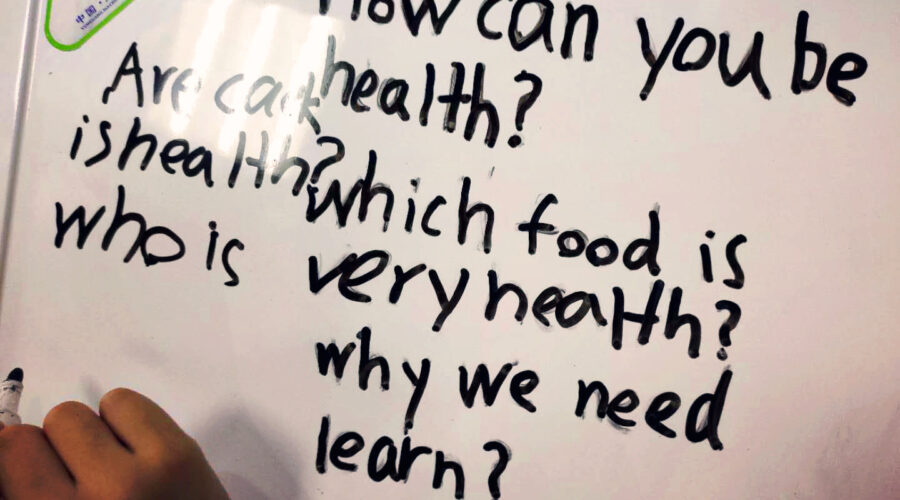 中国
How can you be
health?
which food is
very health?
why we need
learn?
Are
is health?
who is